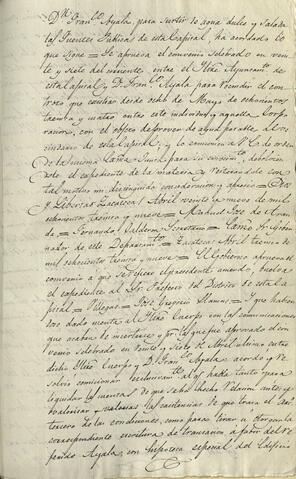 Dn. Franco. Ayala, para surtir de agua dulce y salada
las fuentes publicas de esta Capital, ha acordado lo
que sigue = Se aprueba el convenio celebrado en vein
te y siete del corriente, entre el Iltre Ayuntamto. de
esta Capital y D. Franco. Ayala para rescindir el con
trato que existia desde ocho de Mayo de ochocientos
treinta y cuatro entre este individuo y aquella Corpo
racion, con el objeto de proveer de agua potable al ve
cindario de esta Capital; y lo comunico a V. E. de orden
de la misma Junta para su devolvien
dole el expediente de la materia y reiterandole con
tal motivo mi distinguida consideracion y aprecio = Dios
y Libertad Zacatecas Abril veinte y nueve de mil
ochocientos treinta y nueve = Manuel José de Aran
da = Fernando Calderon Secretario =
nador de este Departamto. = Zacatecas Abril treinta de
mil ochocientos treinta y nueve = El Gobierno aprueba el
convenio a que se refiere el precedente acuerdo, vuelva
el expediente al Sr. Prefecto del Distrito de esta Ca
pital = Villegas = José Gregorio Llamas = I que habien
dose dado cuenta al Iltre Cuerpo con las comunicaciones
que acaban de insertarse y por las que fue aprovado el con
venio celebrado en veinte y siete de Abril ultimo entre
dicho Iltre Cuerpo y D. Franco. Ayala acordo y re
solvio comisionar al que habla tanto para
liquidar las cuentas de que se ha hecho relacion antes, y
las existencias de que trata el Art.
tercero de las condiciones, como para tirar u otorgar la
correspondiente escritura de transacion a favor del re
ferido Ayala, con hipoteca especial del Edificio